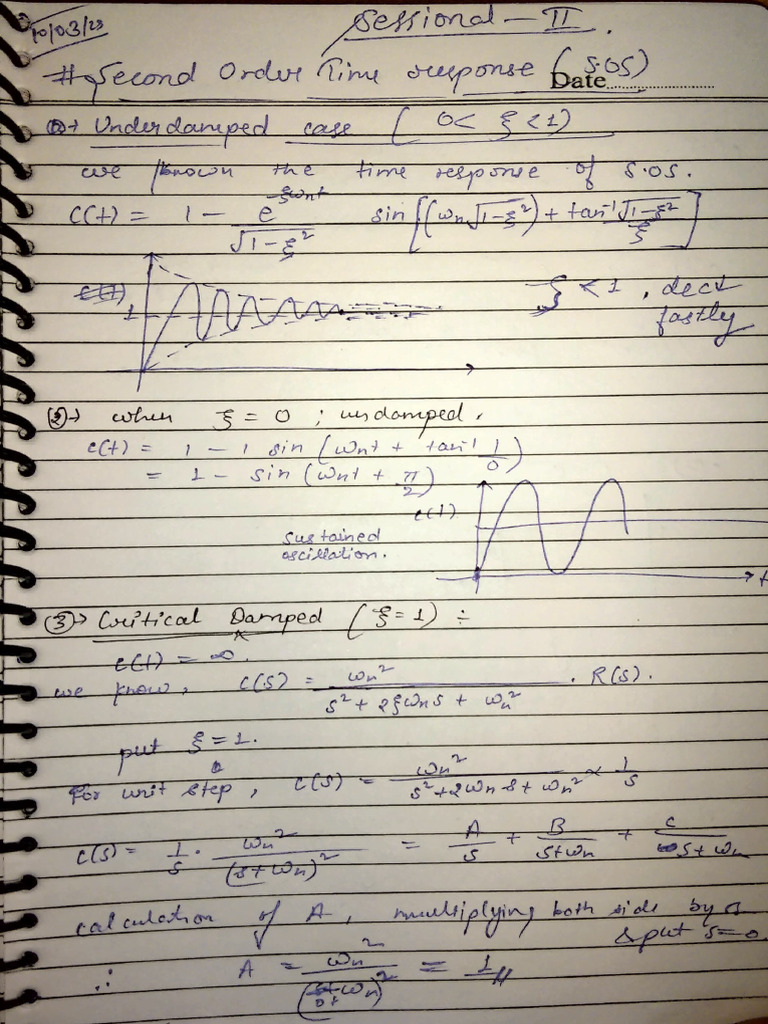 10/03/23
Sessional - II.
# Second Order Time response (S.OS)
Date..................
① → Underdamped case ( 0 < ξ < 1)
we known the time response of S.OS.
C(t) = 1 - e^-ξωnt / √1-ξ² sin [(ωn√1-ξ²) + tan⁻¹ √1-ξ² / ξ]
c(t)
1
ξ < 1, dect
fastly
② → when ξ = 0 ; undamped.
c(t) = 1 - 1 sin (ωnt + tan⁻¹ 1/0)
= 1 - sin (ωnt + π/2)
c(t)
sustained
oscillation.
t
③ → Critical Damped (ξ = 1) ÷
c(t) = ∞.
we know, C(s) = ωn² / s² + 2ξωns + ωn² . R(s).
put ξ = 1.
For unit step, C(s) = ωn² / s² + 2ωn s + ωn² × 1/s
C(s) = 1/s . ωn² / (s + ωn)² = A/s + B/s+ωn + C/s+ωn
calculation of A, multiplying both side by s
& put s = 0.
∴ A = ωn² / (0+ωn)² = 1//